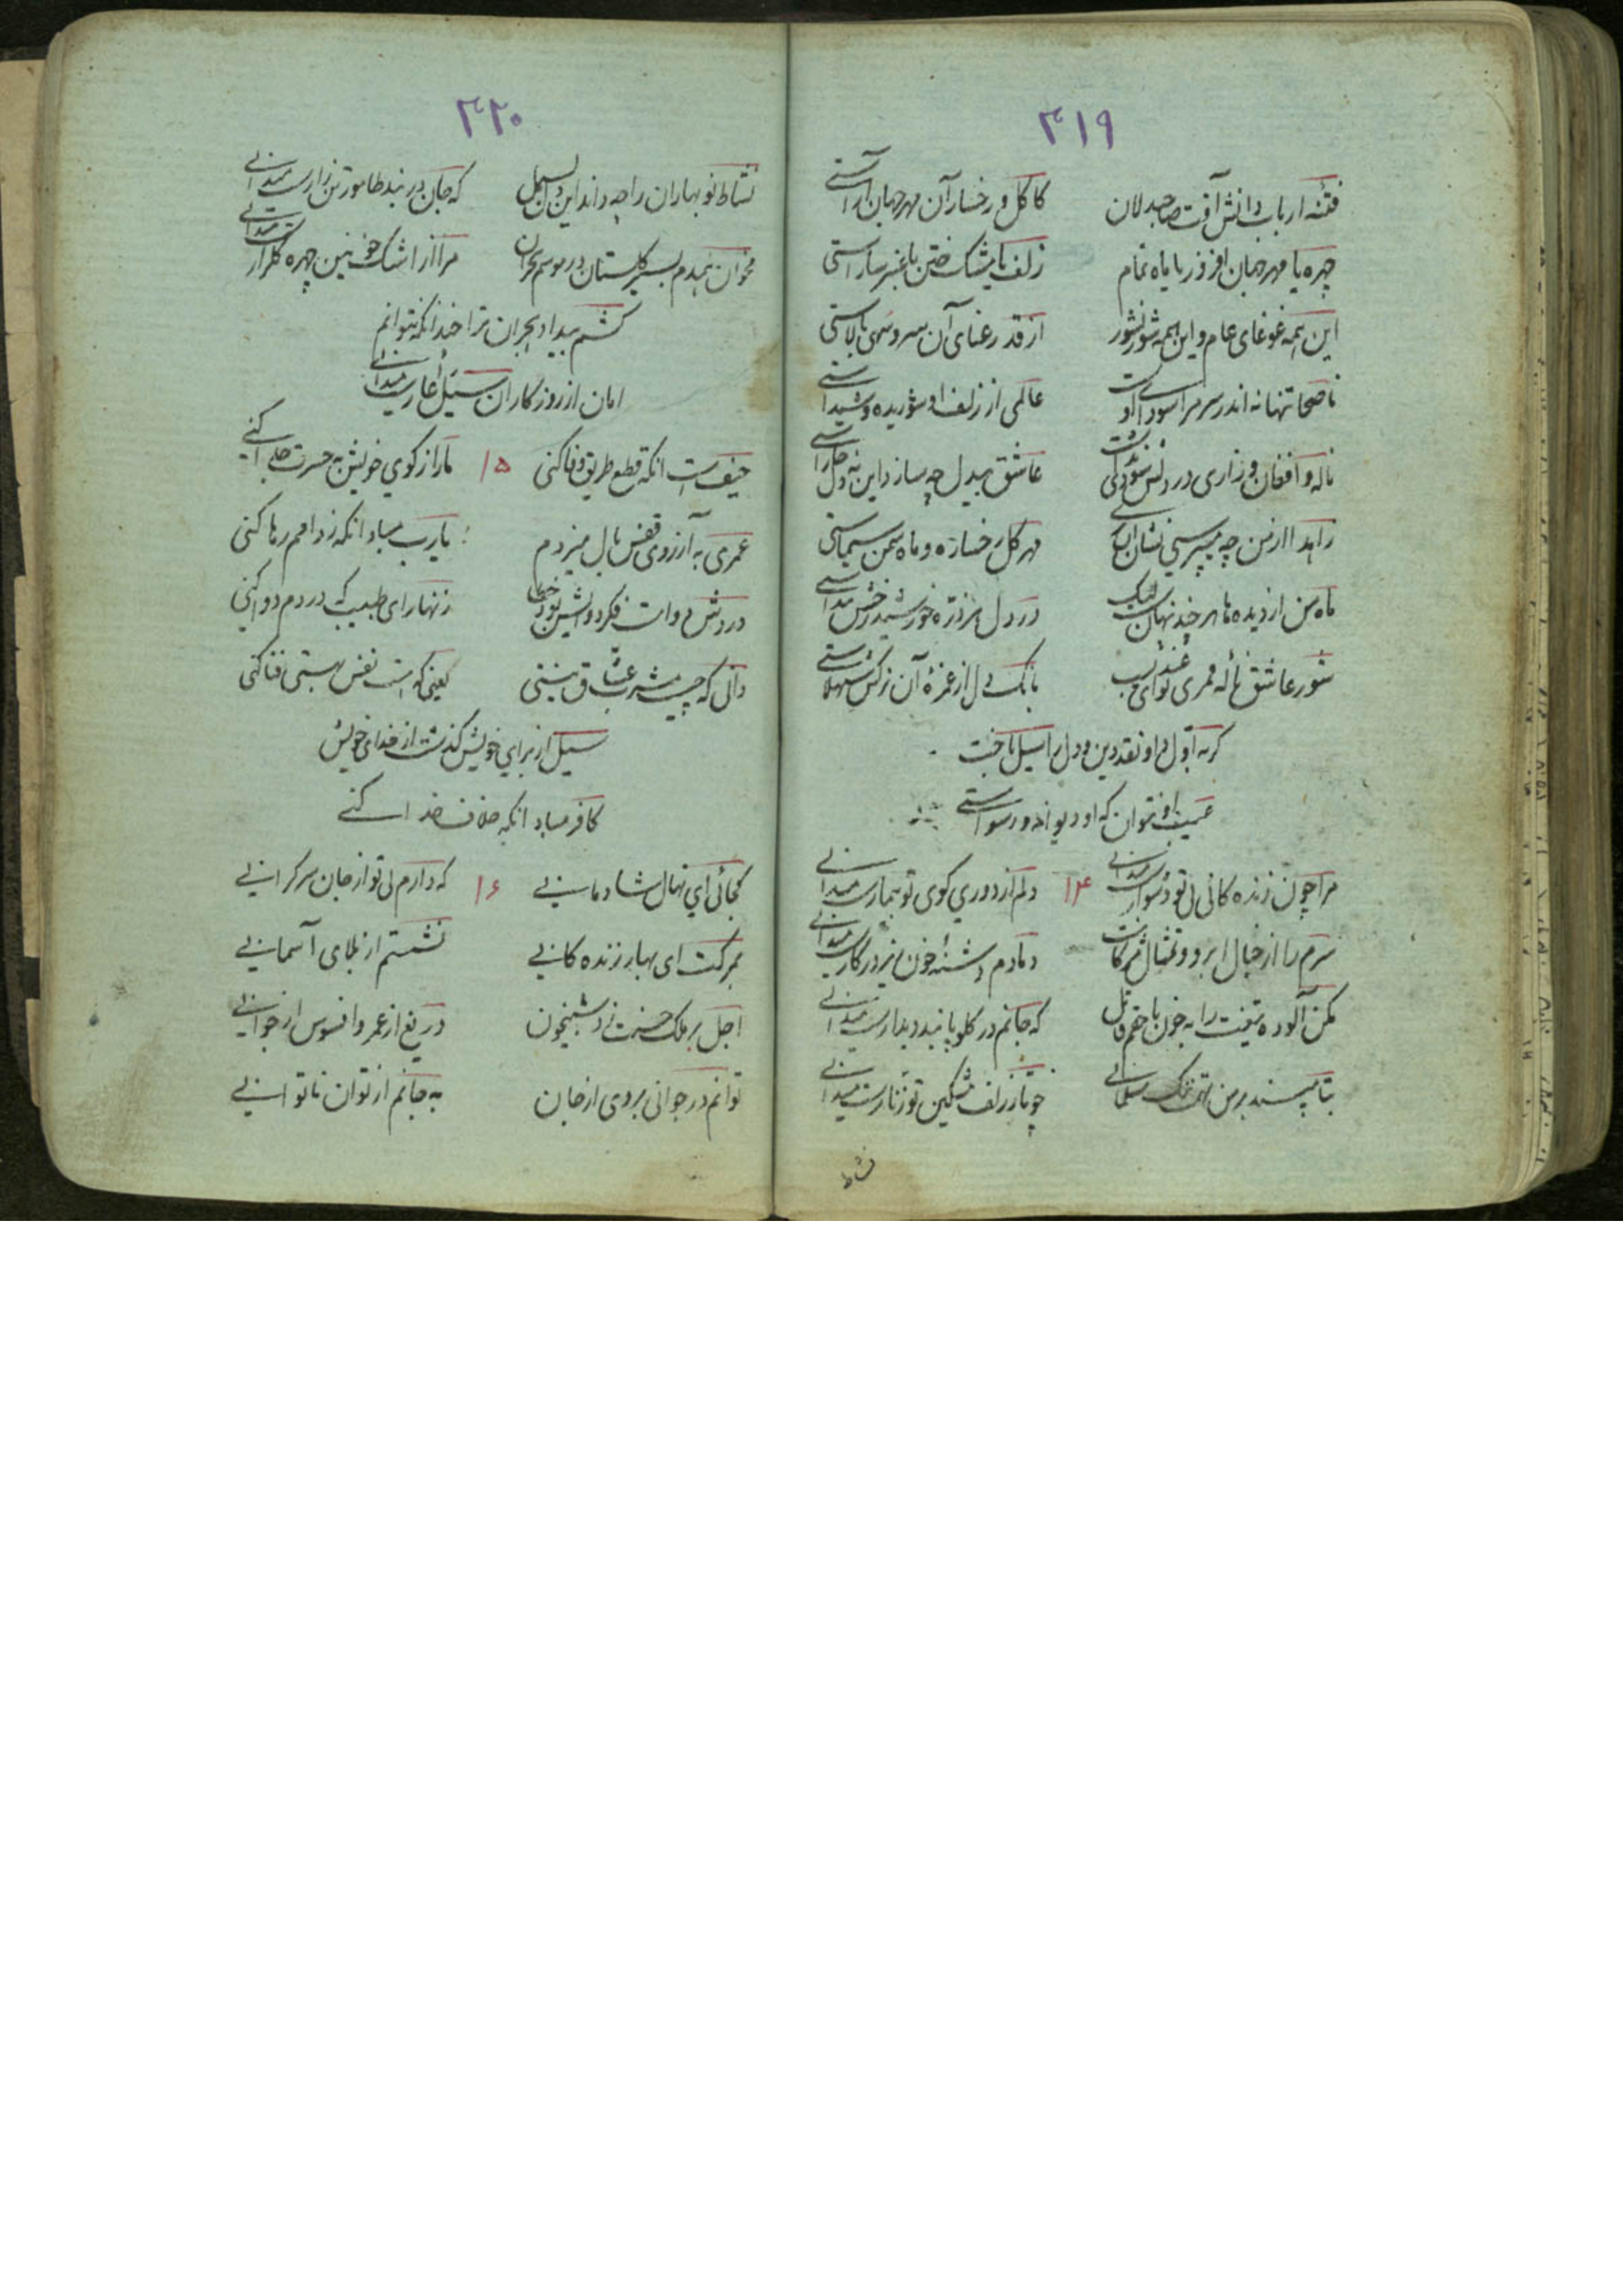 ۳۱۹
فتنه ارباب دانش آفت صاحبدلان کاکل و رخسار آن مهر جهان آراستی
چهره یا مهر جهان افروز یا ماه تمام زلف یا مشک ختن یا عنبر ساراستی
این همه غوغای عام و این همه شور نشور از قد رعنای آن سرو سهی بالاستی
ناصحا تنها نه اندر سر مرا سودای اوست عالمی از زلف او شوریده و شیداستی
ناله و افغان و زاری در دلش سودی نداشت عاشق بیدل چه سازد این نه دل خاراستی
زاهدا از من چه میپرسی نشان مهر گل رخساره و ماه سمن سیماستی
ماه من از دیده ها هر چند پنهان لیک در دل هر ذره خورشید رخش پیداستی
شور عاشق ناله قمری نوای عندلیب بانگ دل از غمزه آن نرگس شهلاستی
گر به اول داو نقد دین و دل را سیل باخت
عیب او نتوان که او دیوانه و رسواستی
مرا چون زندگانی بی تو دشوارست میدانی ۱۴ دلم از دوری کوی تو بیمارست میدانی
سرم را از خیال ابرو و تمثال مژگانت دمادم دشنه خون ریز در کارست میدانی
مکن آلوده تیغت را به خون ناحقم قاتل که جانم در گلو پابند دیدارست میدانی
بتا مپسند بر من تهمت ننگ مسلمانی چو تار زلف مشکین تو زنارست میدانی
نشاط
۳۲۰
نشاط نوبهاران را چه داند این دل بسمل که جان در بند طامور تن زارست میدانی
مخوان همدم بسیر گلستان در موسم هجران مرا از اشک خونین چهره گلزارست میدانی
کشم بیداد هجران ترا چندانکه بتوانم
امان از روزگاران سیل اغیارست میدانی
حیف است انکه قطع طریق وفا کنی ۱۵ ما را ز کوی خویش به حسرت جدا کنی
عمری به آرزوی قفس بال میزدم یارب مباد انکه ز دامم رها کنی
دردش دواست فکر دوایش بود خطا زنهار ای طبیب که دردم دوا کنی
دانی که چیست مشرب عشاق نیستی یعنی که نفس هستی فنا کنی
سیل از برای خویش گذشت از خدای خویش
کافر مباد انکه خلاف خدا کنی
کجائی ای نهال شادمانی ۱۶ که دارم بی تو از جان سرگرانی
بمرگت ای بهار زندگانی نشستم از بلای آسمانی
اجل بر ملک حسنت زد شبیخون دریغ از عمر و افسوس از جوانی
توانم در جوانی بردی از جان به جانم از توان ناتوانی